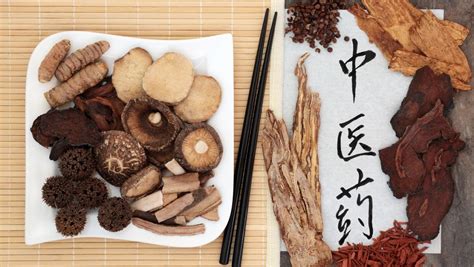 中医药